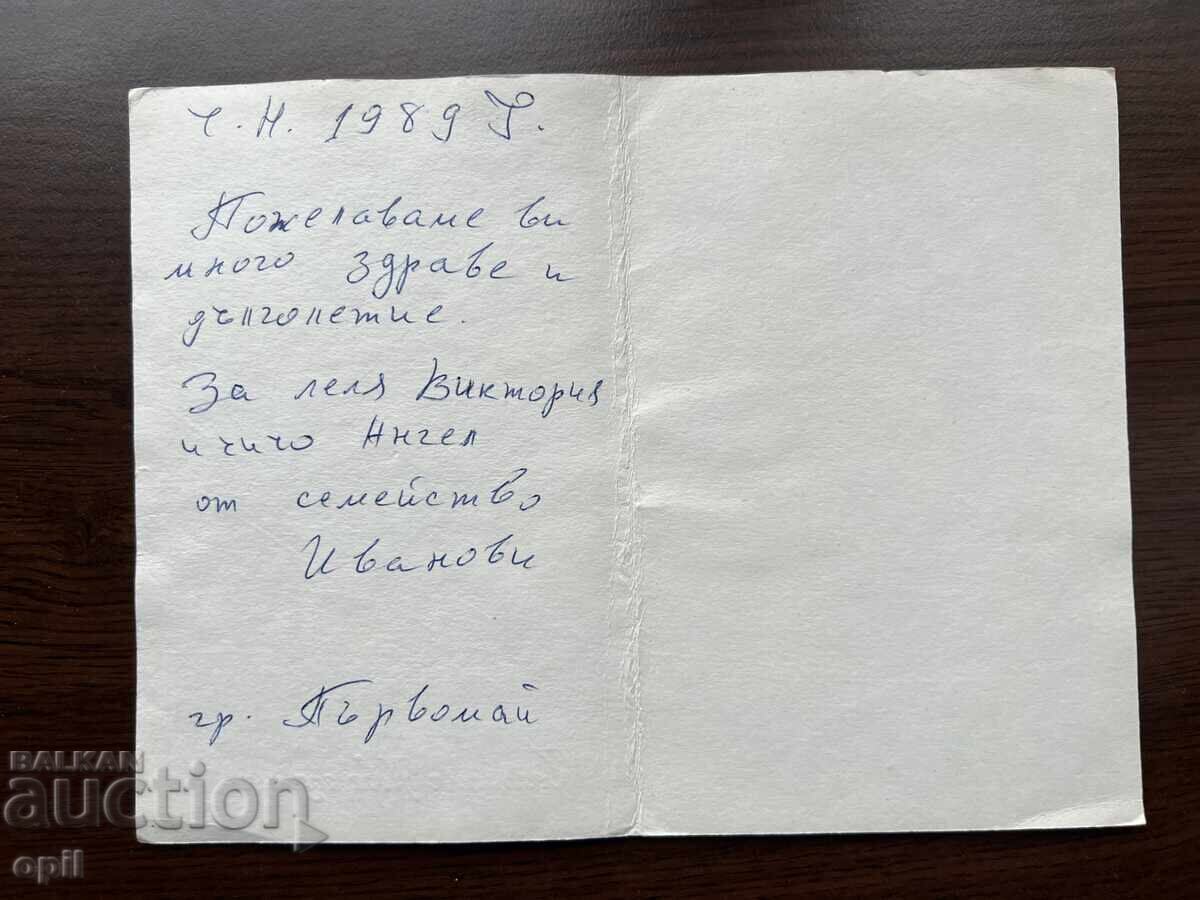 Ч.Н. 1989 Г.
Пожелаваме ви
много здраве и
дълголетие.
За леля Виктория
и чичо Ангел
от семейство
Иванови
гр. Първомай
BALKAN
auction
opil